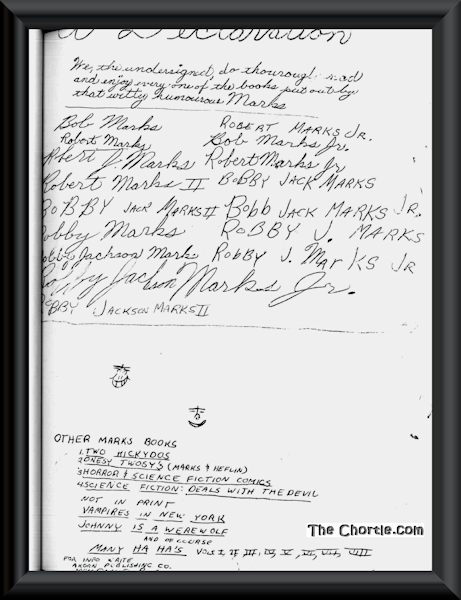 A Declaration
We, the undersigned, do thourough read
and enjoy every one of the books put out by
that witty humourous Marks
Bob Marks ROBERT MARKS JR.
Robert Marks Bob Marks Jr.
Robert J. Marks Robert Marks Jr
Robert Marks II BOBBY JACK MARKS
BOBBY JACK MARKS II Bobb JACK MARKS JR.
Bobby Marks ROBBY J. MARKS
Bobbie Jackson Marks Robby J. MARKS JR
Bobby Jackson Marks Jr.
BOBBY JACKSON MARKS II
OTHER MARKS BOOKS
1. TWO HICKYDOS
2 ONESY TWOSY'S (MARKS & HEFLIN)
3 HORROR & SCIENCE FICTION COMICS
4 SCIENCE FICTION: DEALS WITH THE DEVIL
NOT IN PRINT
VAMPIRES IN NEW YORK
JOHNNY IS A WEREWOLF
AND OF COURSE
MANY HA HA'S VOLS I, II III, IV, V, VI, VII, VIII
FOR INFO WRITE
PUBLISHING CO.
The Chortle.com